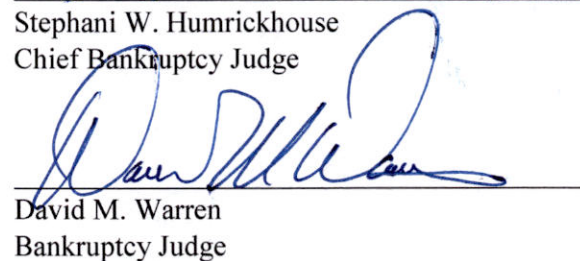 Stephani W. Humrickhouse
Chief Bankruptcy Judge
David M. Warren
David M. Warren
Bankruptcy Judge